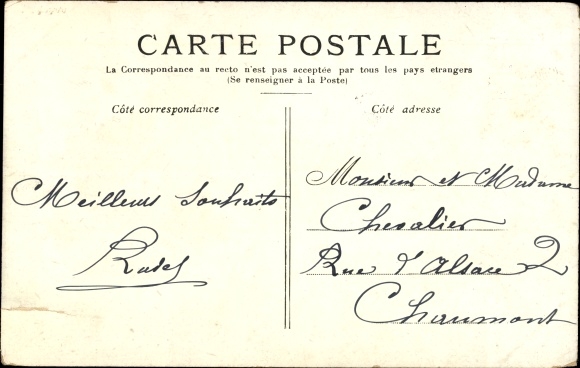 CARTE POSTALE
La Correspondance au recto n'est pas acceptée par tous les pays etrangers
(Se renseigner à la Poste)
Côté correspondance
Côté adresse
Meilleurs Souhaits
Monsieur et Madame
Chevalier
Rue d'Alsace 2
Chaumont